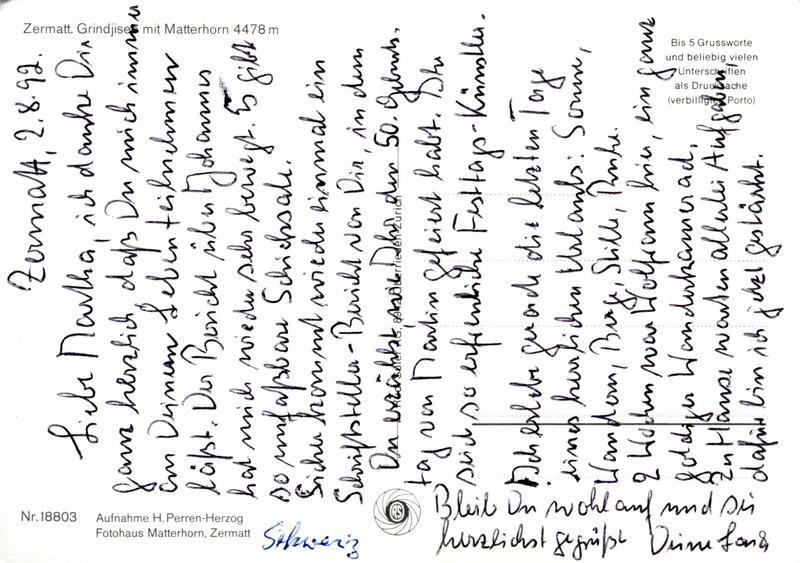 Zermatt. Grindjisee mit Matterhorn 4478 m
Bis 5 Grussworte
und beliebig vielen
Unterschriften
als Drucksache
(verbilligtes Porto)
Zermatt, 2.8.92.
Liebe Martha, ich danke Dir
ganz herzlich, daß Du mich immer
an Deinem Leben teilnehmen
läßt. Der Bericht über Johannes
hat mich wieder sehr bewegt. Es gibt
so unfaßbare Schicksale.
Sicher kommt wieder einmal ein
Schriftsteller-Bericht von Dir, in dem
Du erzählst wie Ihr den 50. Geburts-
tag von Martin gefeiert habt. Ihr
seid so erfreuliche Festtags-Künstler.
Ich erlebe gerade die letzten Tage
eines herrlichen Urlaubs: Sonne,
Wandern, Berge, Stille, Ruhe.
2 Wochen war Wolfram hier, ein ganz
goldiger Wanderkamerad.
Zu Hause warten allerlei Aufgaben,
dafür bin ich jetzt gestärkt.
Bleib Du wohlauf und sei
herzlichst gegrüßt Deine
Nr. 18803
Aufnahme H. Perren-Herzog
Fotohaus Matterhorn, Zermatt
Schweiz